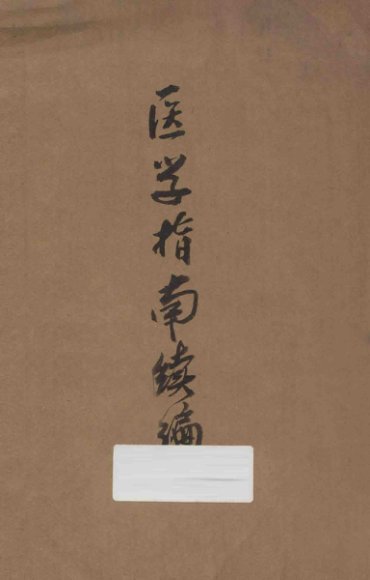 医学指南续编